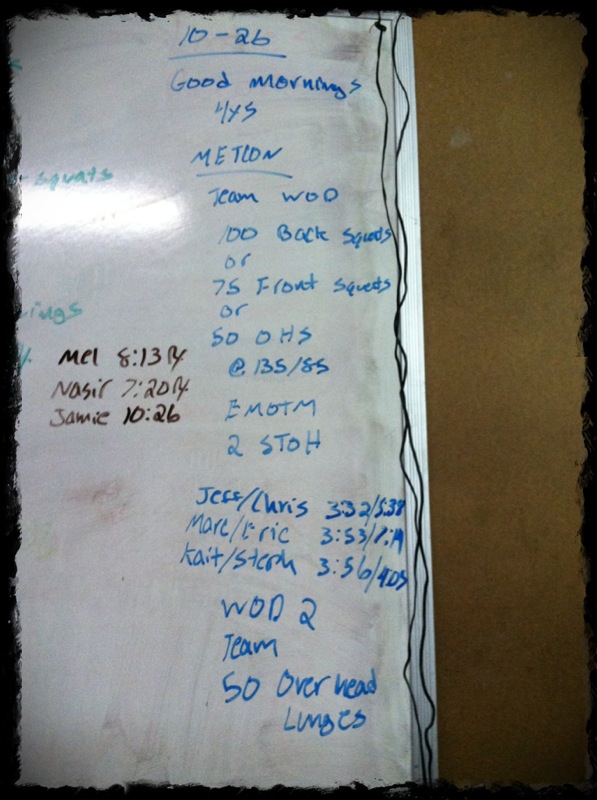 10-26
Good Mornings
4x5
METCON
Squats
Team WOD
100 Back Squats
or
75 Front Squats
or
50 OHS
@ 135/85
Mel 8:13 Rx
Nasir 7:20 Rx
Jamie 10:26
EMOTM
2 STOH
Jeff/Chris 3:32/5:38
Marc/Eric 3:53/7:19
Kait/Steph 3:56/
WOD 2
Team
50 Overhead
Lunges